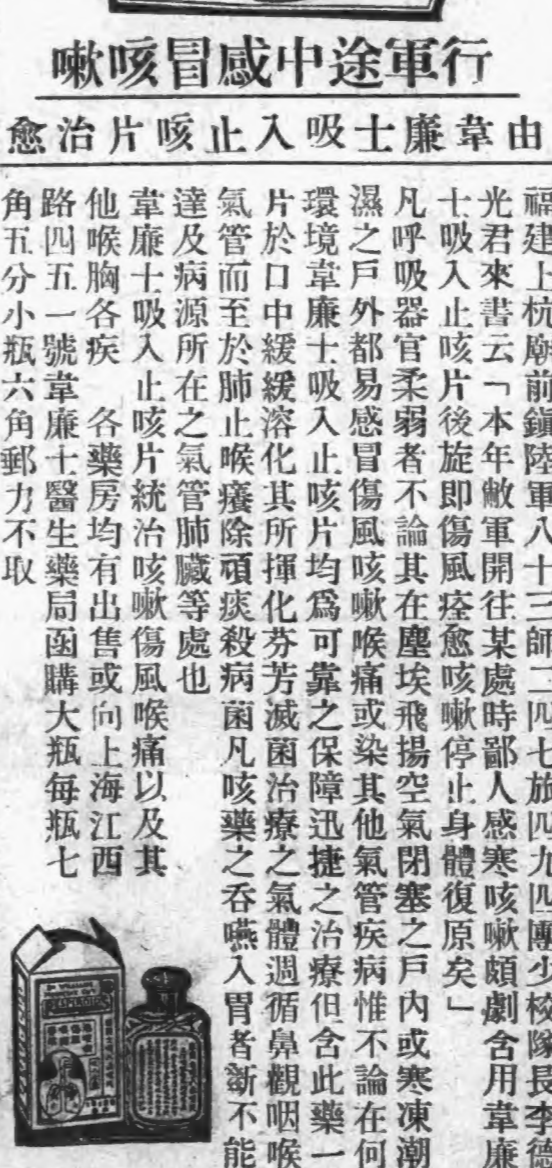 行軍途中感冒咳嗽
由韋廉士吸入止咳片治愈
福建上杭廟前鎮陸軍八十三師二四七旅四九四團少校隊長李德
光君來書云「本年敝軍開往某處時鄙人感寒咳嗽頗劇含用韋廉
士吸入止咳片後旋即傷風痊愈咳嗽停止身體復原矣」
凡呼吸器官柔弱者不論其在塵埃飛揚空氣閉塞之戶內或寒凍潮
濕之戶外都易感冒傷風咳嗽喉痛或染其他氣管疾病惟不論在何
環境韋廉士吸入止咳片均爲可靠之保障迅捷之治療但含此藥一
片於口中緩緩溶化其所揮化芬芳滅菌治療之氣體週循鼻觀咽喉
氣管而至於肺止喉癢除頑痰殺病菌凡咳藥之吞嚥入胃者斷不能
達及病源所在之氣管肺臟等處也
韋廉士吸入止咳片統治咳嗽傷風喉痛以及其
他喉胸各疾　各藥房均有出售或向上海江西
路四五一號韋廉士醫生藥局函購大瓶每瓶七
角五分小瓶六角郵力不取